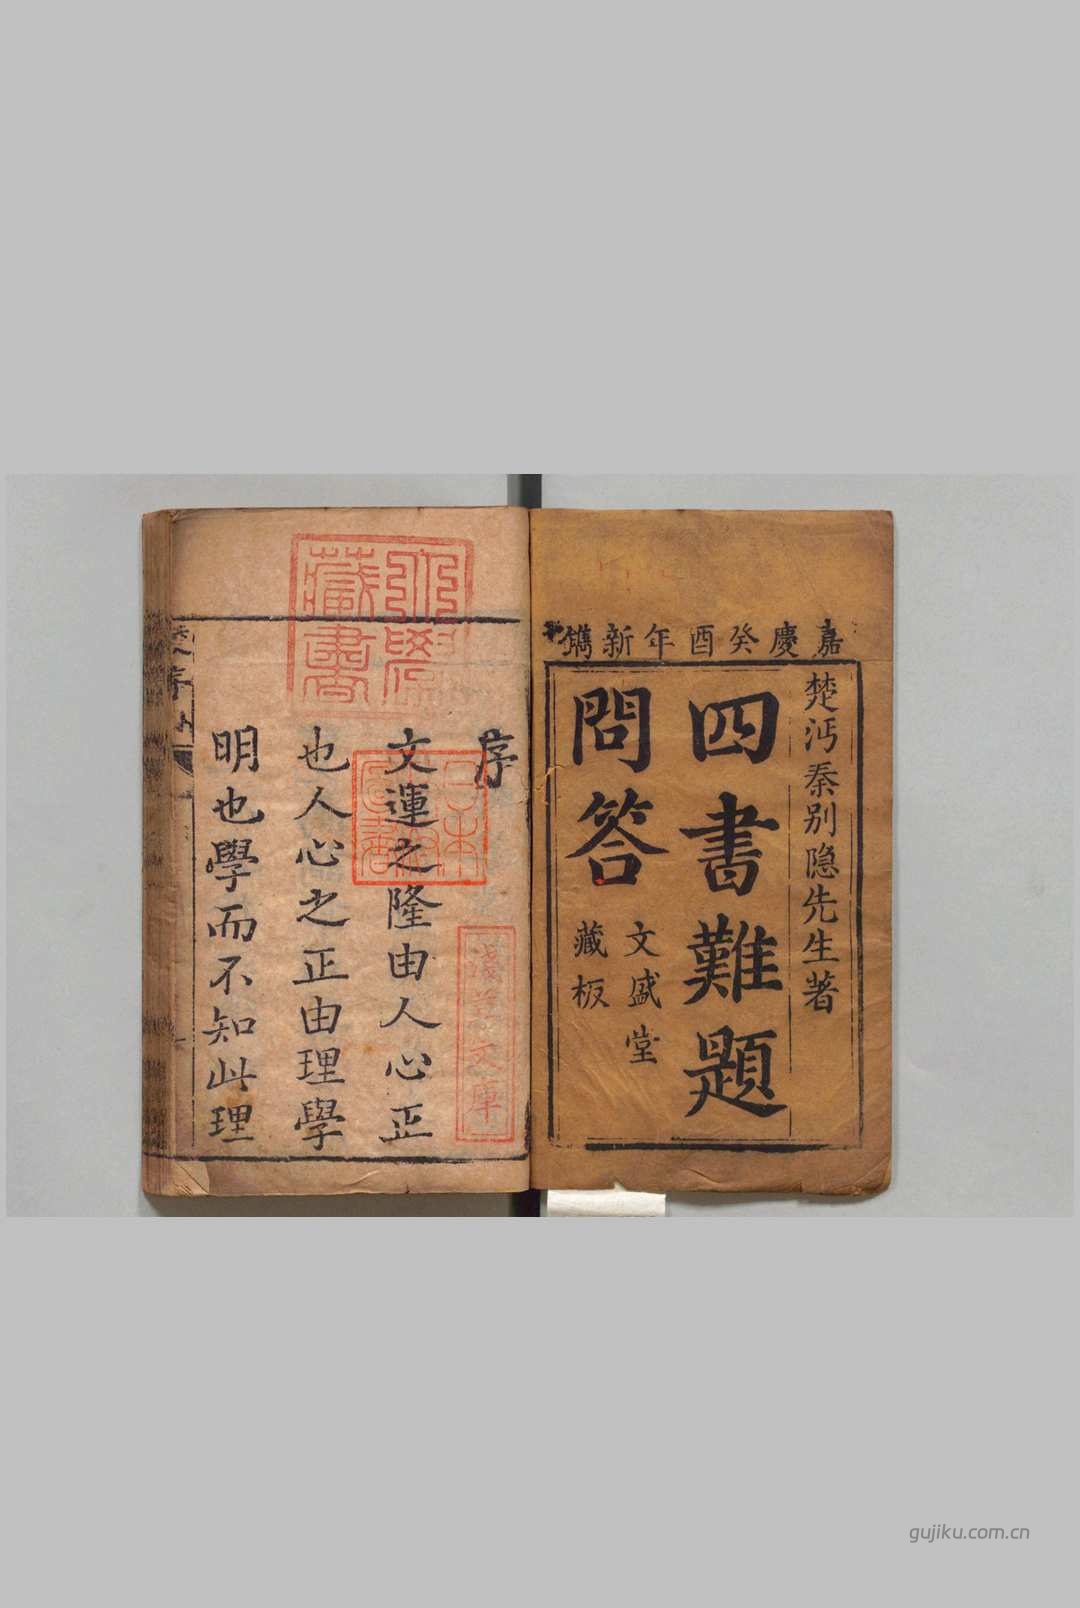 嘉慶癸酉年新鐫
楚沔秦别隐先生著
四書難題
問答
文盛堂
藏板
序
文運之隆由人心正
也人心之正由理學
明也學而不知此理
藏書
日本
淺草文庫
gujiku.com.cn